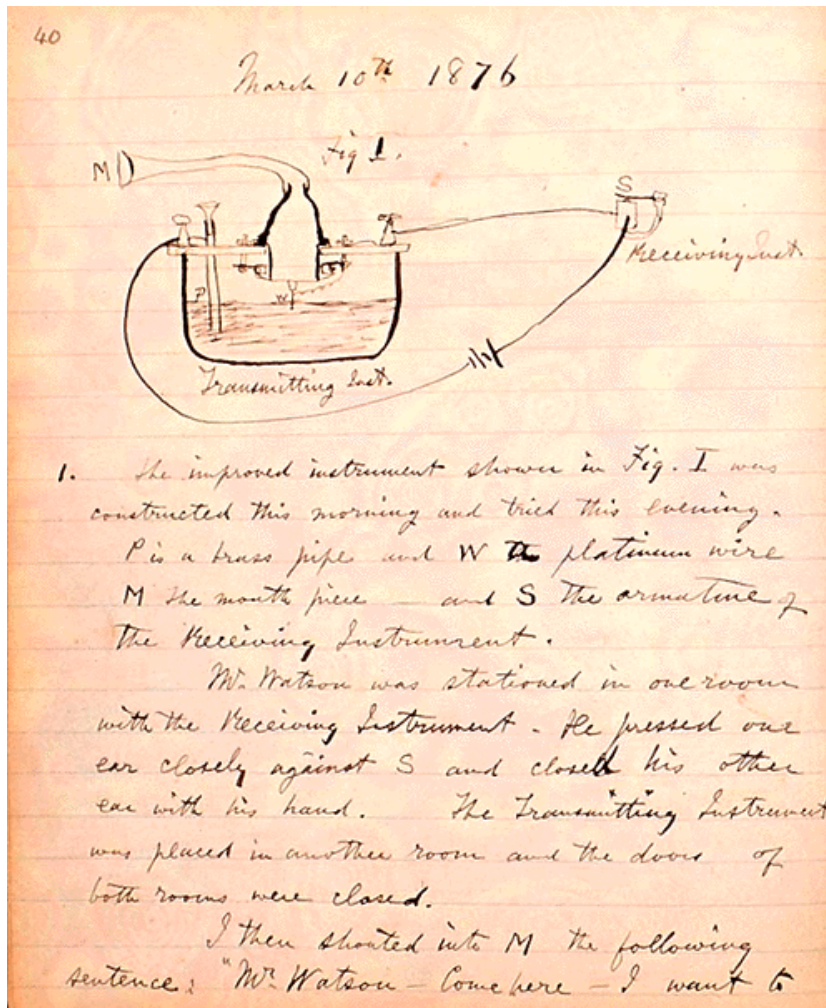 40
March 10th 1876
Fig 1.
M
S
Receiving Inst.
P
W
Transmitting Inst.
1. The improved instrument shown in Fig. I was
constructed this morning and tried this evening.
P is a brass pipe and W the platinum wire
M the mouth piece — and S the armature of
the Receiving Instrument.
Mr. Watson was stationed in one room
with the Receiving Instrument. He pressed one
ear closely against S and closed his other
ear with his hand. The Transmitting Instrument
was placed in another room and the doors of
both rooms were closed.
I then shouted into M the following
sentence: "Mr. Watson — Come here — I want to